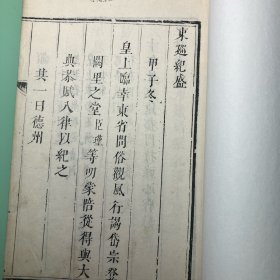 東巡紀盛
甲子冬
皇上臨幸東省問俗觀風行謁岱宗登
闕里之堂臣瑾等明蒙陪從得與大
典恭賦八律以紀之
其一日德州